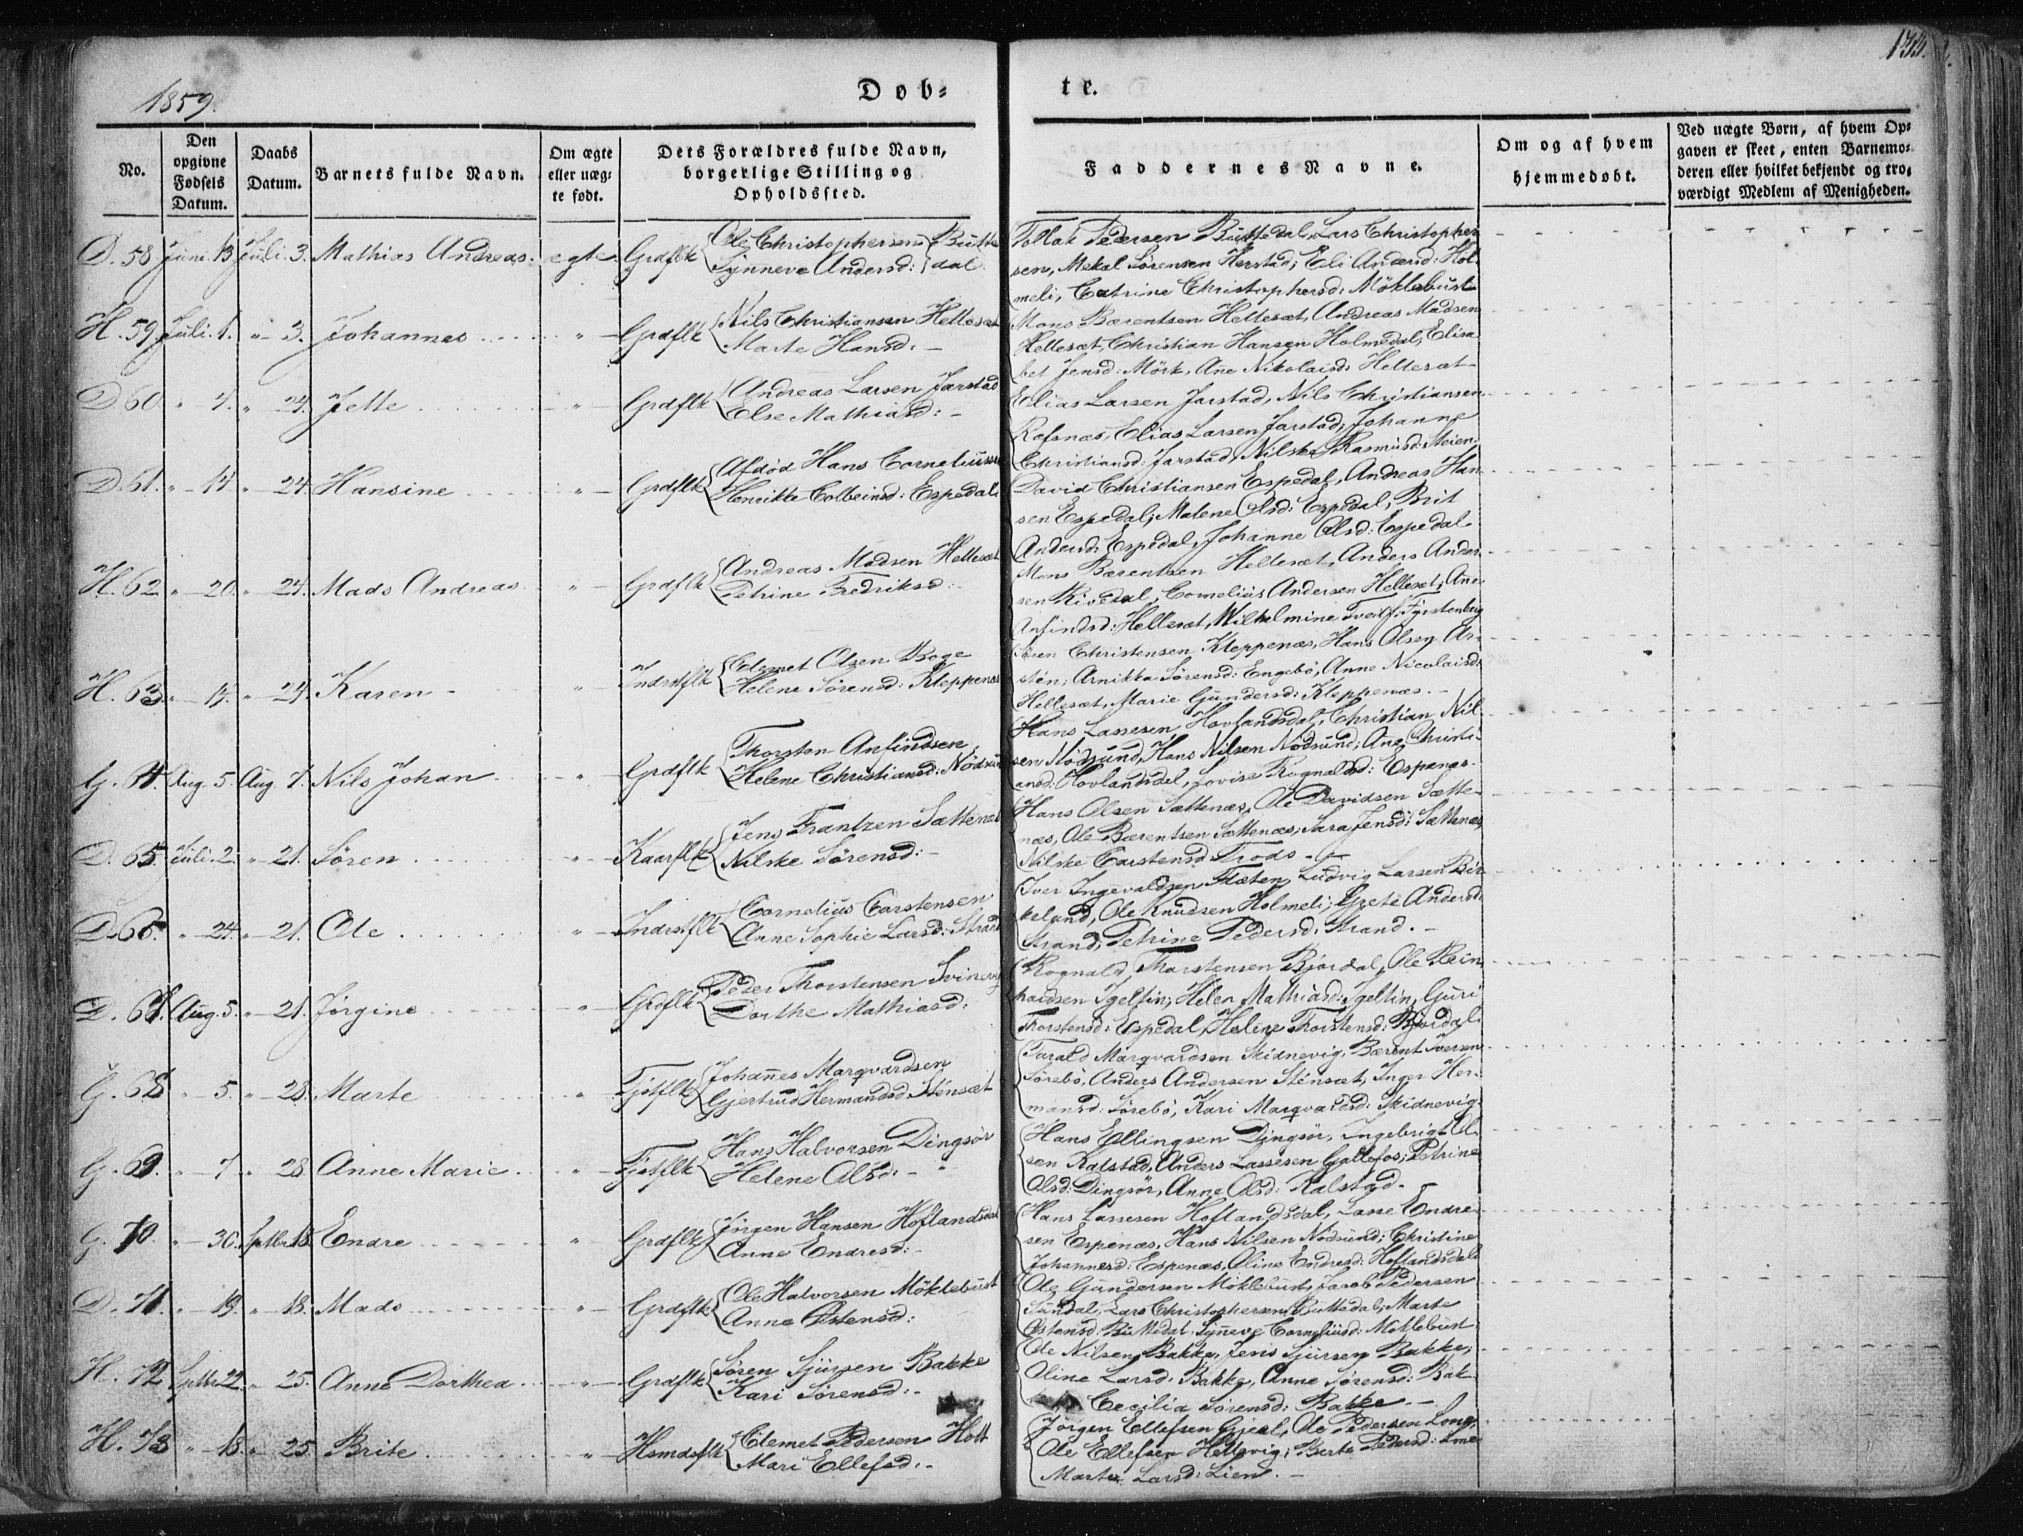 1859.
Døb-
te.
135.
No.
Den opgivne Fødsels Datum.
Daabs Datum.
Barnets fulde Navn.
Om ægte eller uægte født.
Dets Forældres fulde Navn, borgerlige Stilling og Opholdssted.
Faddernes Navne.
Om og af hvem hjemmedøbt.
Ved uægte Børn, af hvem Opgaven er skeet, enten Barnemoderen eller hvilket bekjendt og troværdigt Medlem af Menigheden.
D. 58 Juni 13 Juli 3. Mathias Andreas. ægte Grdflk Ole Christophersen Butte
Synneve Andersd: dal
Tollak Pedersen Buttedal, Lars Christopher
sen, Mekal Sørensen Herstad; Eli Andersd: Hol
meli, Catrine Christophersd: Möklebust
H. 59 Juli 1. " 3. Johannes " Grdflk Nils Christiansen Hellesæt
Marte Hansd: -
Mons Bærentsen Hellesæt, Andreas Madsen
Hellesæt, Christian Hansen Holmedal, Elisa
bet Jensd: Mörk, Ane Nikolaisd: Hellesæt
D. 60 " 7. " 24. Jette " Grdflk Andreas Larsen Jarstad
Else Mathiasd: -
Elias Larsen Jarstad, Nils Christiansen
Ræfsnæs, Elias Larsen Jarstad, Johanne
Christiansd: Jarstad, Nilska Rasmusd: Steien
D. 61. " 14 " 24. Hansine " Grdflk Afdöd Hans Corneliussen
Henrikke Colbeinsd: Espedal
David Christiansen Espedal, Andreas Han
sen Espedal; Malene Olsd: Espedal, Brit
Andersd: Espedal, Johanne Olsd: Espedal
H. 62 " 20. " 24. Mads Andreas " Grdflk Andreas Madsen Hellesæt
Petrine Fredriksd:
Mons Bærentsen Hellesæt, Anders Ander
sen Rivedal, Cornelius Andersen Hellesæt; Ane
Anfindsd: Hellesæt, Wilhelmine Tveit f. Fyrstenberg
H. 63 " 14. " 24. Karen " Indrstflk Clemet Olsen Boge
Helene Sørensd: Kleppenæs
Søren Christensen Kleppenæs, Hans Olsen Ar
stén; Arnikka Sørensd: Engebö, Anne Nicolaisd:
Hellesæt, Marie Gundersd: Kleppenæs. -
G. 64. Aug. 5 Aug 7. Nils Johan " Grdflk Thorsten Anfindsen
Helene Christiansd: Nödsund
Hans Lassesen, Hovlandsdal, Christian Nil
sen Nödsund, Hans Nilsen Nödsund; Ane Christi
ansd: Hovlandsdal, Lovise Rognaldsd: Espenæs.
D. 65 Juli 2. " 21. Søren " Kaarflk Jens Frantzen Sættenæs
Nilske Sørensd: -
Hans Olsen Sættenæs, Ole Davidsen Sætte
næs, Ole Bærentsen Sættenæs; Sara Jensd: Sættenæs
Nilske Carstensd: Frods -
D. 66. " 24. " 21. Ole " Indrstflk Cornelius Carstensen
Anne Sophie Larsd: Strand
Iver Ingevaldsen Flæten, Ludvig Larsen Bir
keland, Ole Knudsen Holmeli; Grete Andersd:
Strand, Petrine Pedersd: Strand. -
D. 67 Aug. 5. " 21. Jørgine " Grdflk Peder Thorstensen Svinevig
Dorthe Mathiasd:
Rognald Thorstensen Bjordal, Ole Rein
hardsen Igeltin; Helen Mathiasd: Igeltin, Guri
Thorstensd: Espedal, Helene Thorstensd: Bjordal.
G. 68 " 5. " 28. Marte " Fjøtflk Johañes Marqvardsen
Gjertrud Hermandsd: Sténsæt
Tarald Marqvardsen Skidnevig, Bærent Iversen
Sørebö, Anders Andersen Sténsæt, Inger Her
mansd: Sørebö, Kari Marqvardsd: Skidnevig
G. 69. " 7 " 28. Anne Marie " Fjøtflk Hans Halvorsen Dingsör
Helene Olsd: -
Hans Ellingsen Dingsör, Ingebrigt Ol
sen Kalstad, Anders Lassesen Gallefos; Petrine
Olsd: Dingsör, Anne Olsd: Kalstad. -
G. 70. " 30. Septbr 18. Endre " Grdflk Jörgen Hansen Hoflandsdal
Anne Endresd: -
Hans Lassesen Hoflandsdal, Lasse Endre
sen Espenæs, Hans Nilsen Nödsund; Christine
Johannesd: Espenæs, Oline Endresd: Hoflandsdal
D. 71. " 19. " 18. Mads " Grdflk Ole Halvorsen Möklebust
Anne Østensd:
Ole Gundersen Möklebust, Jacob Pedersen
Sundal, Lars Christophersen Buttedal; Marte
Østensd: Buttedal, Syñeve Corneliusd: Möklebust
H. 72 Septbr 22. " 25. Anne Dorthea " Grdflk Søren Sjursen Bakke
Kari Sørensd: -
Ole Nilsen Bakke, Jens Sjursen Bakke;
Oline Larsd: Bakke, Anne Sørensd: Bak
Cecilia Sørensd: Bakke. -
H. 73 " 18. " 25. Brite " Hsmdsflk Clemet Pedersen Holt
Mari Ellefsd: -
Jørgen Ellefsen Gjeal, Ole Pedersen Long,
Ole Ellefsen Hellevig; Berte Pedersd:
Marte Larsd: Lien. -